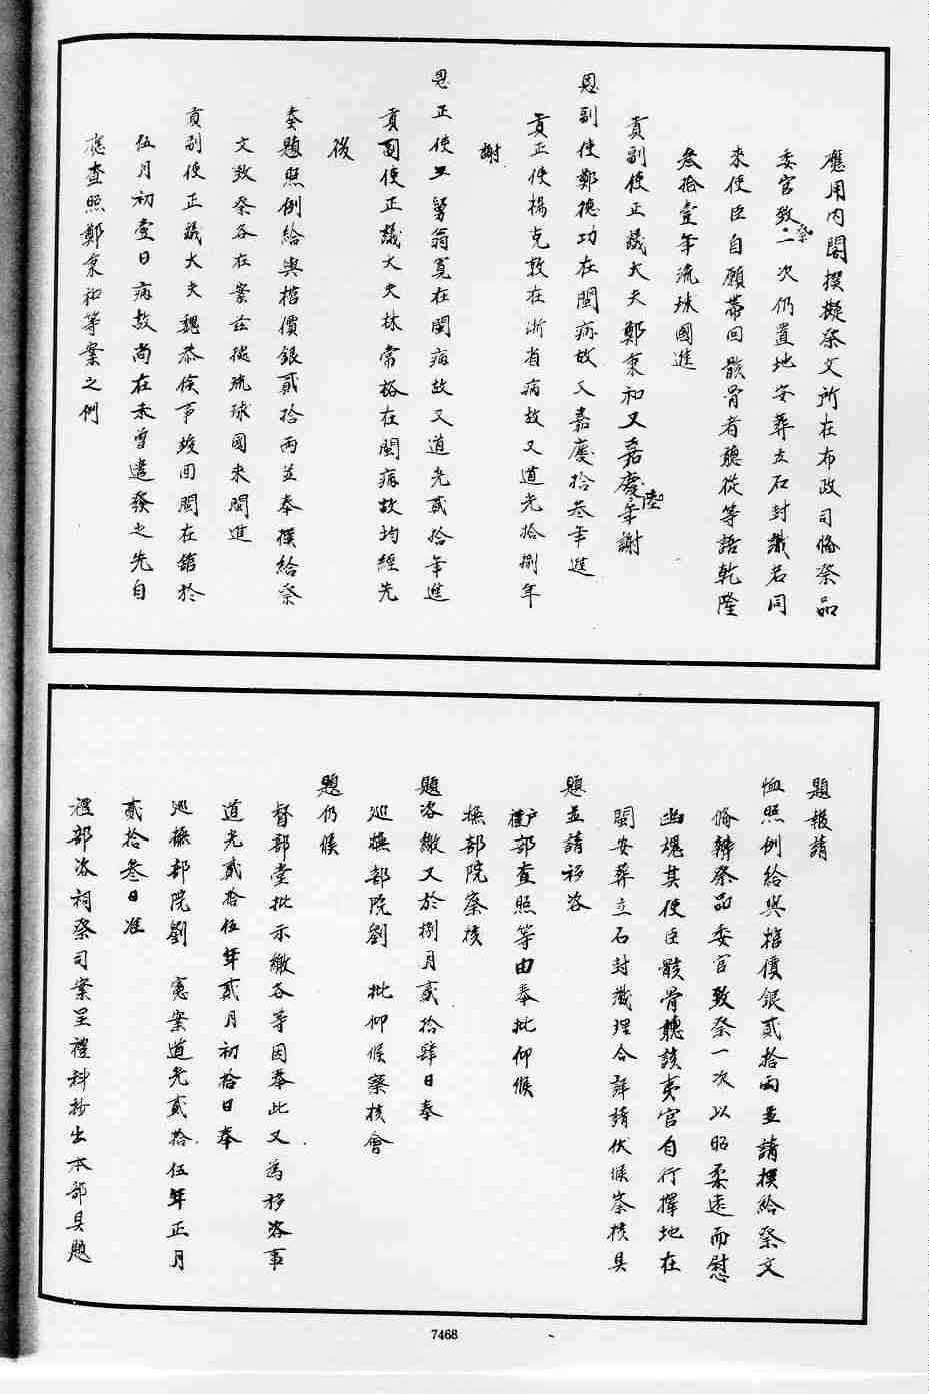 應用內閣撰擬祭文所在布政司偹祭品
委官致祭二次仍置地安葬立石封識若同
來使臣自願帶回骸骨者聽從等語乾隆
叁拾壹年流球國進
貢副使正議大夫鄭秉和又嘉慶陸年謝
恩副使鄭德功在閩病故又嘉慶拾叁年進
貢正使楊克敦在浙省病故又道光拾捌年
謝
恩正使翁寛在閩病故又道光貳拾年進
貢副使正議大夫林常裕在閩病故均經先
後
奏題照例給與棺價銀貳拾兩並奉撰給祭
文致祭各在案茲據琉球國來閩進
貢副使正議大夫魏恭儉事竣回閩在舘於
伍月初壹日病故尚在未曾遣發之先自
應查照鄭秉和等案之例
題報請
恤照例給與棺價銀貳拾兩並請撰給祭文
偹辦祭品委官致祭一次以昭柔遠而慰
幽魂其使臣骸骨聽該夷官自行擇地在
閩安葬立石封識理合詳請伏候察核具
題並請移咨
禮部查照等由奉批仰候
撫部院察核
題咨繳又於捌月貳拾肆日奉
巡撫部院劉 批仰候察核會
題仍候
督部堂批示繳各等因奉此又為移咨事
道光貳拾伍年貳月初拾日奉
巡撫部院劉 憲案道光貳拾伍年正月
貳拾叁日准
禮部咨祠祭司案呈禮科抄出本部具題
7468